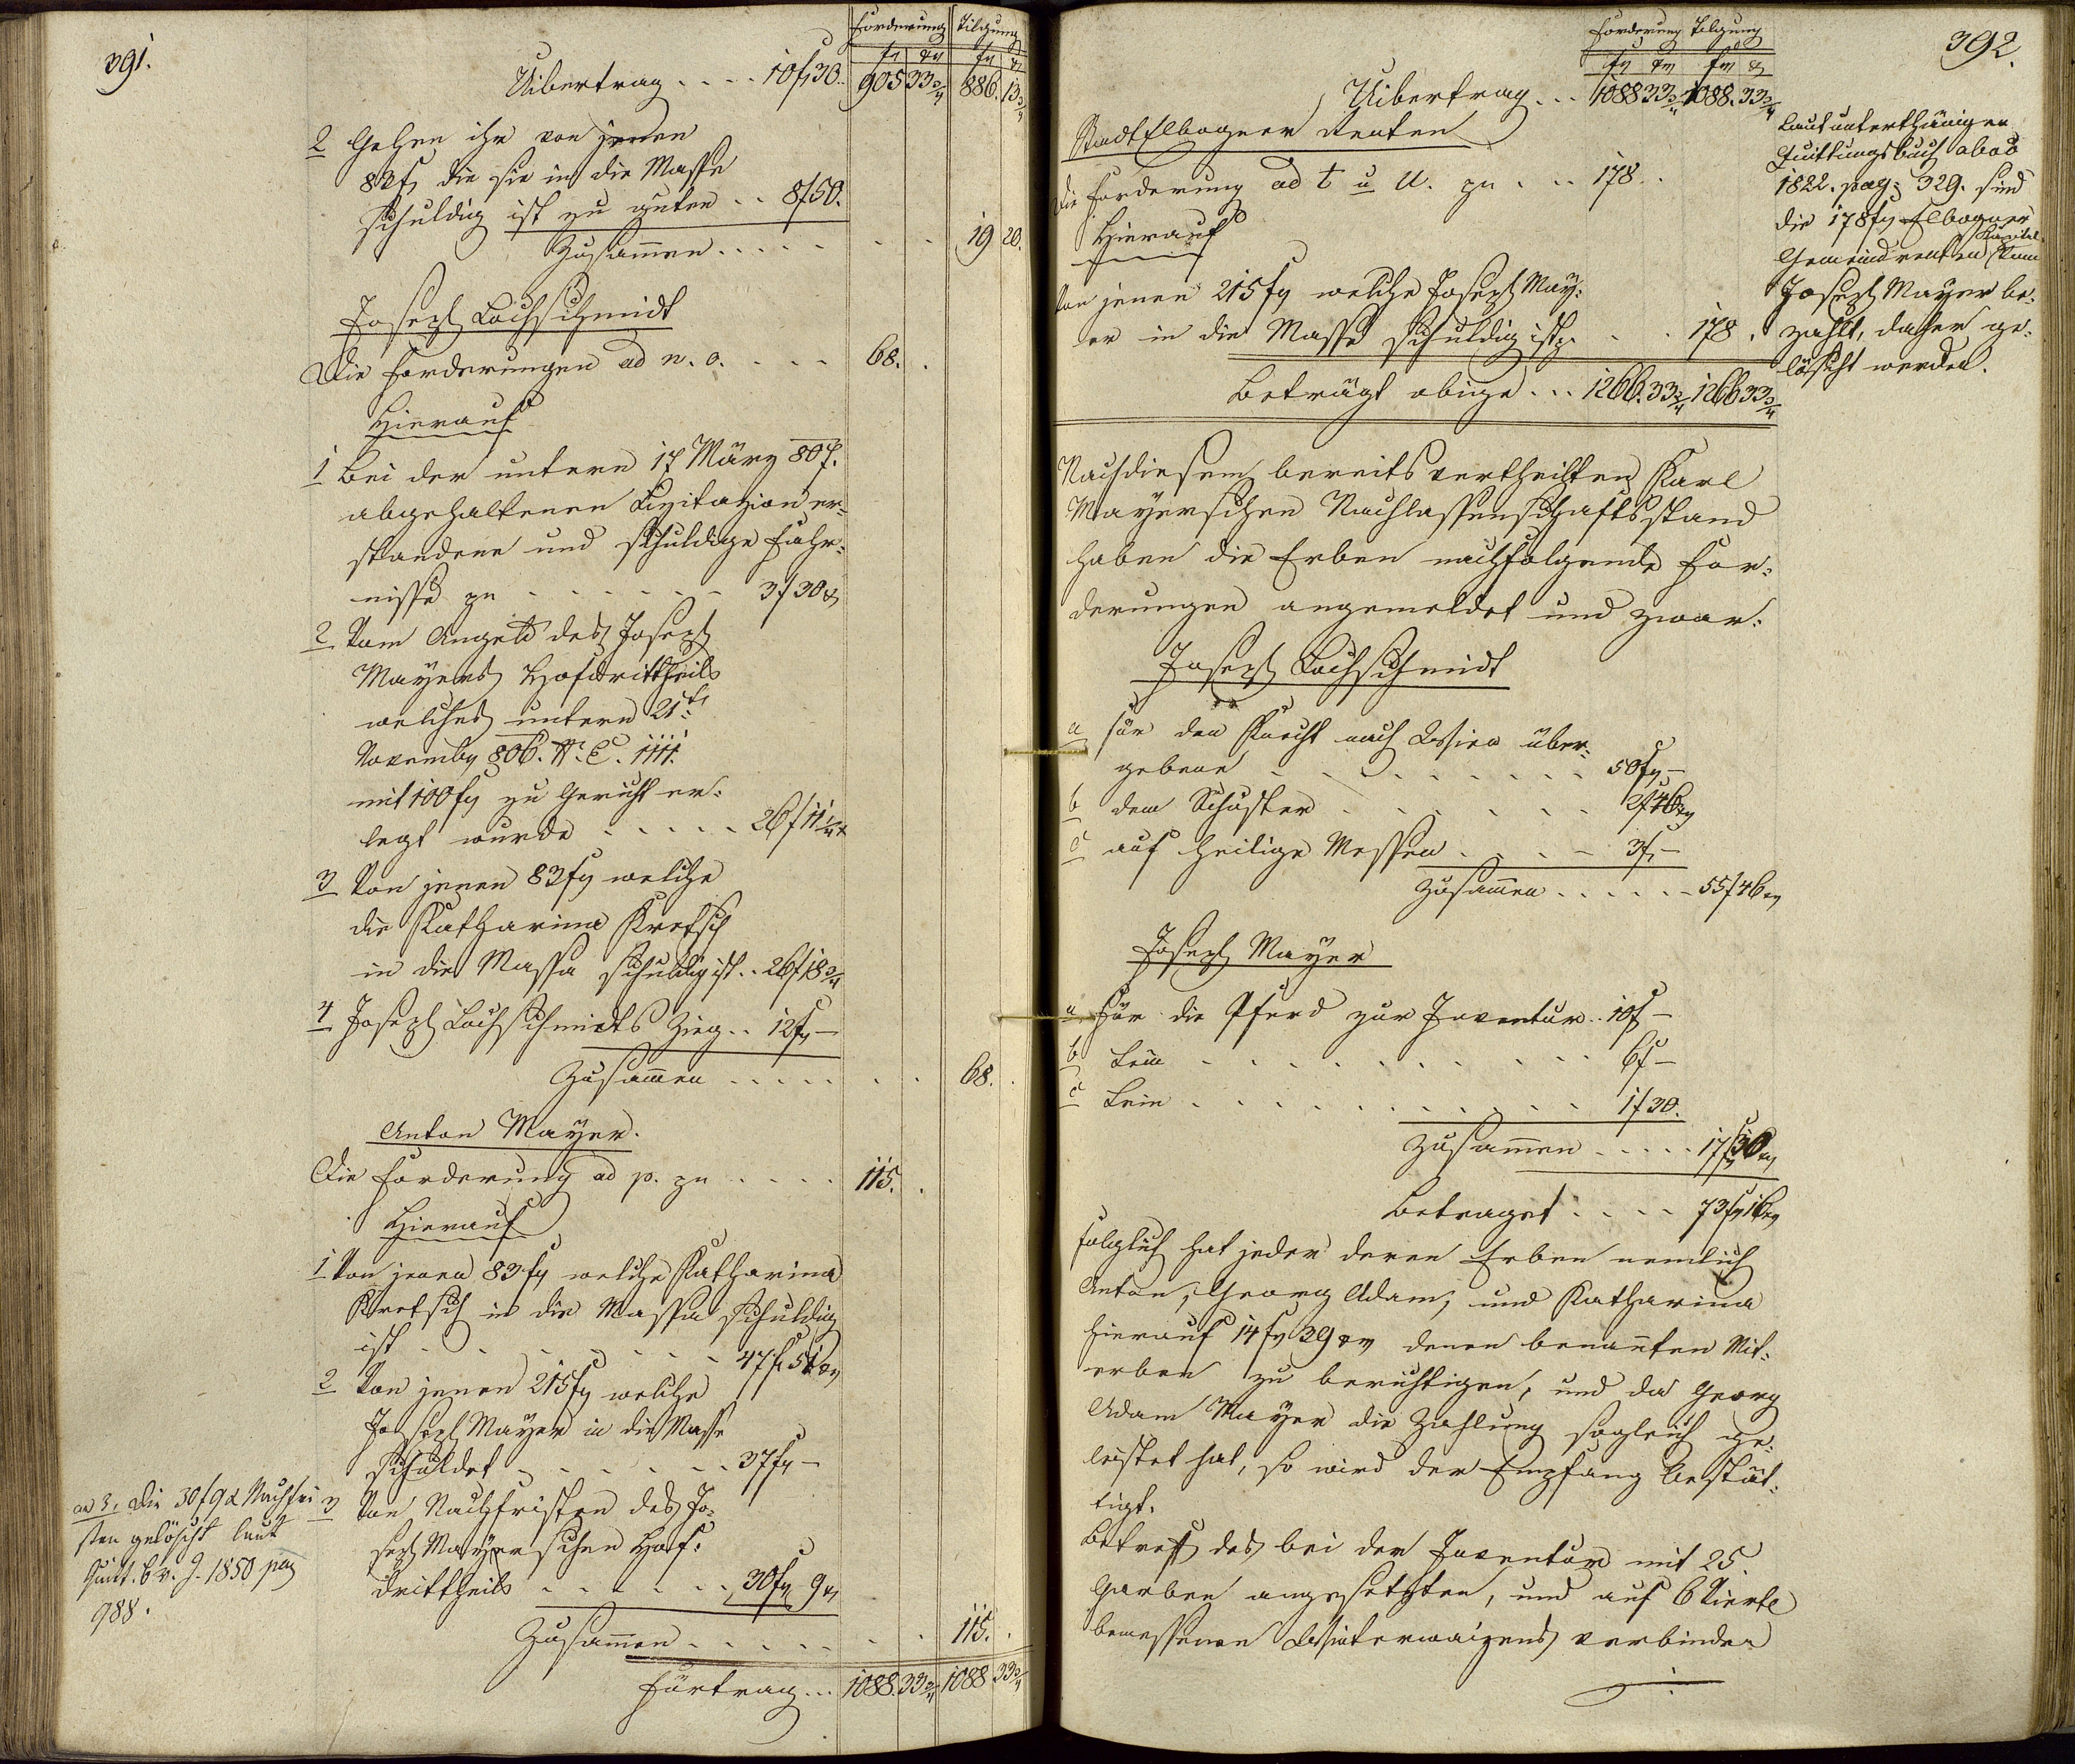 391.
Forderung Tilgung
fl xr fl x
Uibertrag . . . . 10f 30. 905 33 3/4 886. 13 3/4
2 Gehen ihr von jenen
83 fl die sie in die Masse
schuldig ist zu guten . . 8f 50.
Zusammen . . . . . 19 20.
Joseph Lochschmidt
Die Forderungen ad n. o. . . . . 68. .
Hierauf
1 Bei der untern 17 März 807.
abgehaltenen Lizitazion er=
standene und schuldige Fahr=
nisse pr - - - - - - 3f 30 x
2 Vom Angeld des Joseph
Mayers Hofdrittheils
welches untern 21t
Novemb 806. Nr. E. 1111.
mit 100 fl zu Gericht er=
legt wurde . . . . . 26f 11 1/4 x
3 Von jenen 83 fl welche
die Katharina Kretsch
in die Massa schuldig ist . . 26f 18 3/4
4 Joseph Lochschmidts Zieg . . 12 fl —
Zusammen . . . . . . . 68. .
Anton Mayer.
Die Forderung ad p. pr . . . . . 115. .
Hierauf
1 Von jenen 83 fl welche Katharina
Kretsch in die Massa schuldig
ist - - - - - - - 47 fl 51 xr
2 Von jenen 215 fl welche
Joseph Mayer in die Masse
schuldet - - - - - - 37 fl —
3 Von Nachfristen des Jo=
seph Mayerschen Hof=
drittheils - - - - - - 30 fl 9 x
Zusammen - - - - - . . 115. .
Fürtrag . . . 1088. 33 3/4 1088 33 3/4
ad 3, Die 30f 9 x Nachfri
sten gelöscht laut
Quitt. B v. J. 1850 pag
988.
392.
Forderung Tilgung
fl xr fl x
Uibertrag . . . 1088 33 3/4 1088. 33 3/4
Stadt Elbogner Renten
Die Forderung ad t u U. pr . . . 178. .
Hierauf
Von jenen 215 fl welche Joseph May=
er in die Masse schuldig ist, . . . 178 .
Beträgt obige . . . 1266. 33 3/4 1266 33 3/4
Laut unterthänigen
Quittungsbuch
1822. pag: 329. sind
die 178 fl Elbogner
Gemeindrenten Kapital vom
Joseph Mayer be=
zahlt, daher ge=
löscht werden.
Nach diesem bereits vertheilten Karl
Mayerschen Nachlassenschaftsstand
haben die Erben nachfolgende For=
derungen angemeldet und zwar.
Joseph Lochschmidt
a für den Knecht nach Wien über=
gebene - - - - - - - - 50 fl —
b dem Schuster - - - - - - 2f 46 xr
c auf heilige Messen . - - - 3f —
Zusammen . . . . . . 55f 46 xr
Joseph Mayer
a, Für die Pferd zur Inventur . . 10f —
b Lein - - - - - - - - - 6f —
c Lein - - - - - - - - - 1f 30.
Zusammen . . . . . 17 fl 30 xr
Betraget . . . . 73 fl 16 xr
folglich hat jeder deren Erben nemlich
Anton, Georg Adam, und Katharina
hierauf 14 fl 39 xr denen benanten Mit=
erben zu berichtigen, und da Georg
Adam Mayer die Zahlung sogleich ge=
leistet hat, so wird der Empfang bestät=
tigt.
Betreff des bei der Inventur mit 25
Garben angesetzten, und auf 6 Viertl
bemessenen Winterwaizens verbinden